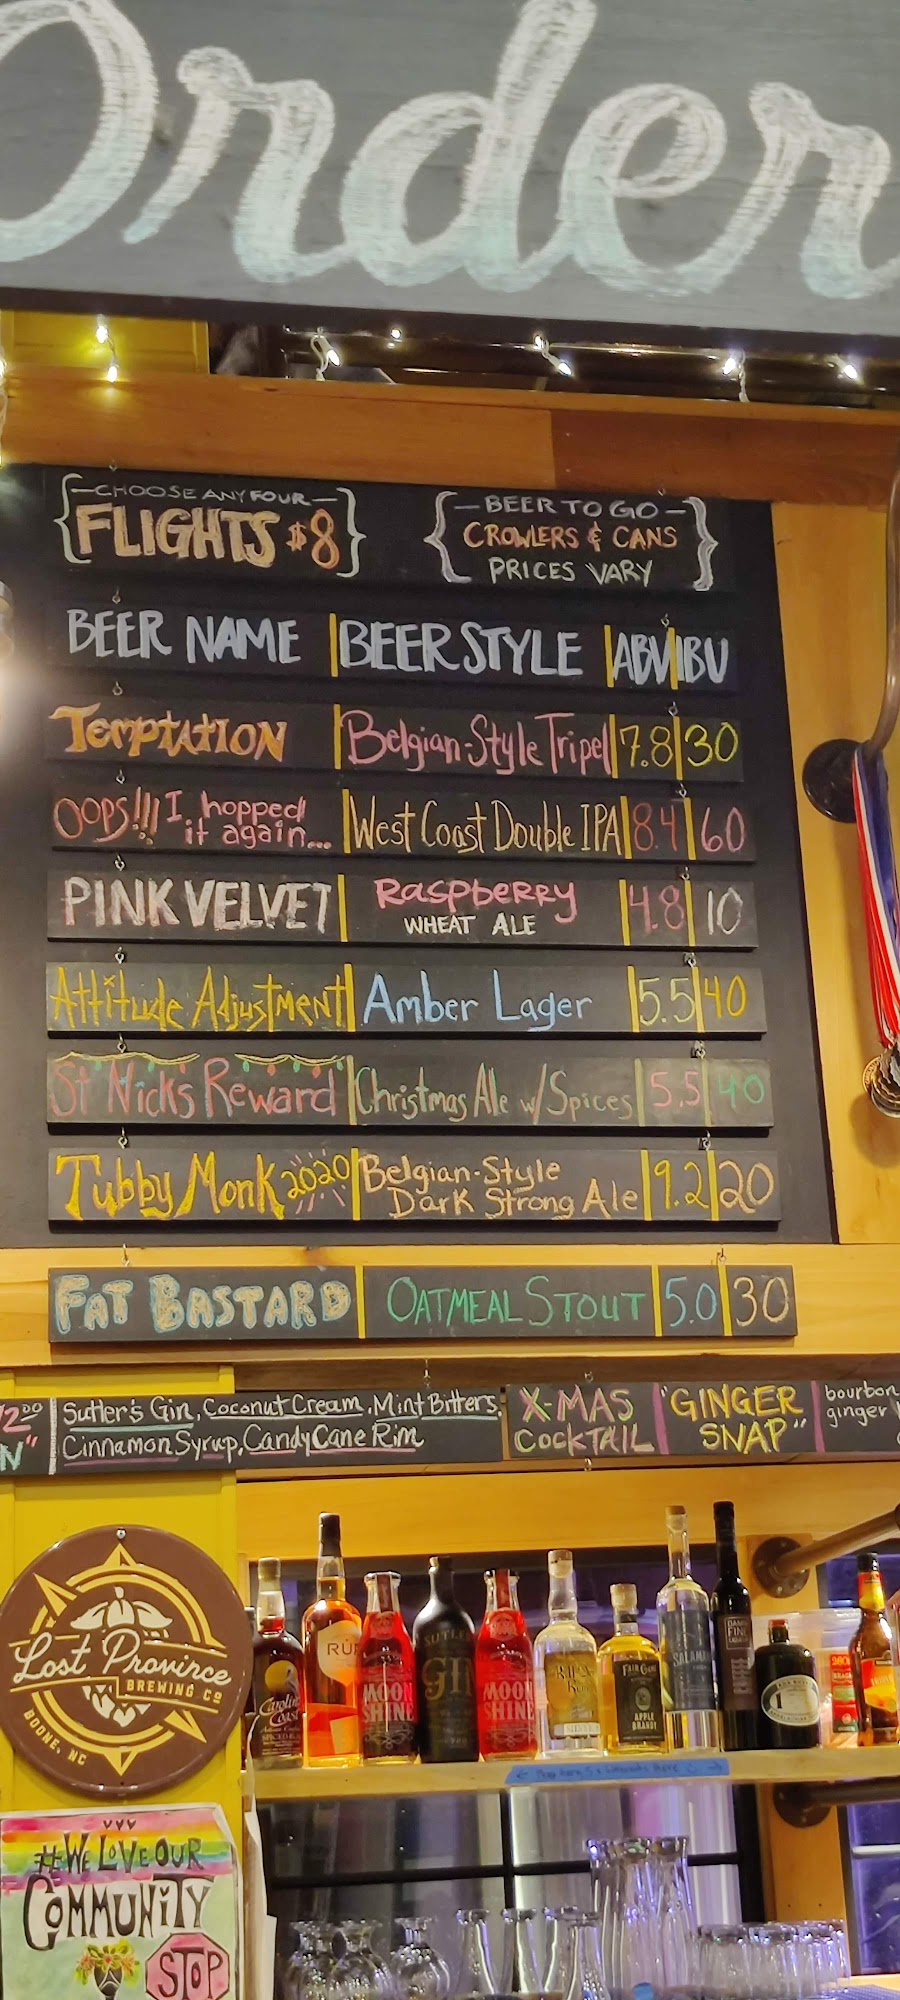 Order
CHOOSE ANY FOUR
FLIGHTS $8
BEER TO GO
CROWLERS & CANS
PRICES VARY
BEER NAME BEER STYLE ABV IBU
Temptation Belgian-Style Tripel 7.8 30
OOPS!!! I hopped
it again... West Coast Double IPA 8.4 60
PINK VELVET Raspberry
WHEAT ALE 4.8 10
Attitude Adjustment Amber Lager 5.5 40
St Nicks Reward Christmas Ale w/ Spices 5.5 40
Tubby Monk 2020 Belgian-Style
Dark Strong Ale 9.2 20
FAT BASTARD OATMEAL STOUT 5.0 30
Sutler's Gin, Coconut Cream, Mint Bitters,
Cinnamon Syrup, Candy Cane Rim
X-MAS
COCKTAIL
"GINGER
SNAP"
bourbon
ginger
Lost Province
BREWING CO
BOONE, NC
#WE LOVE OUR
COMMUNITY
STOP
MOON
SHINE
SUTLER'S
GIN
MOON
SHINE
FAIR GAME
APPLE
BRANDY